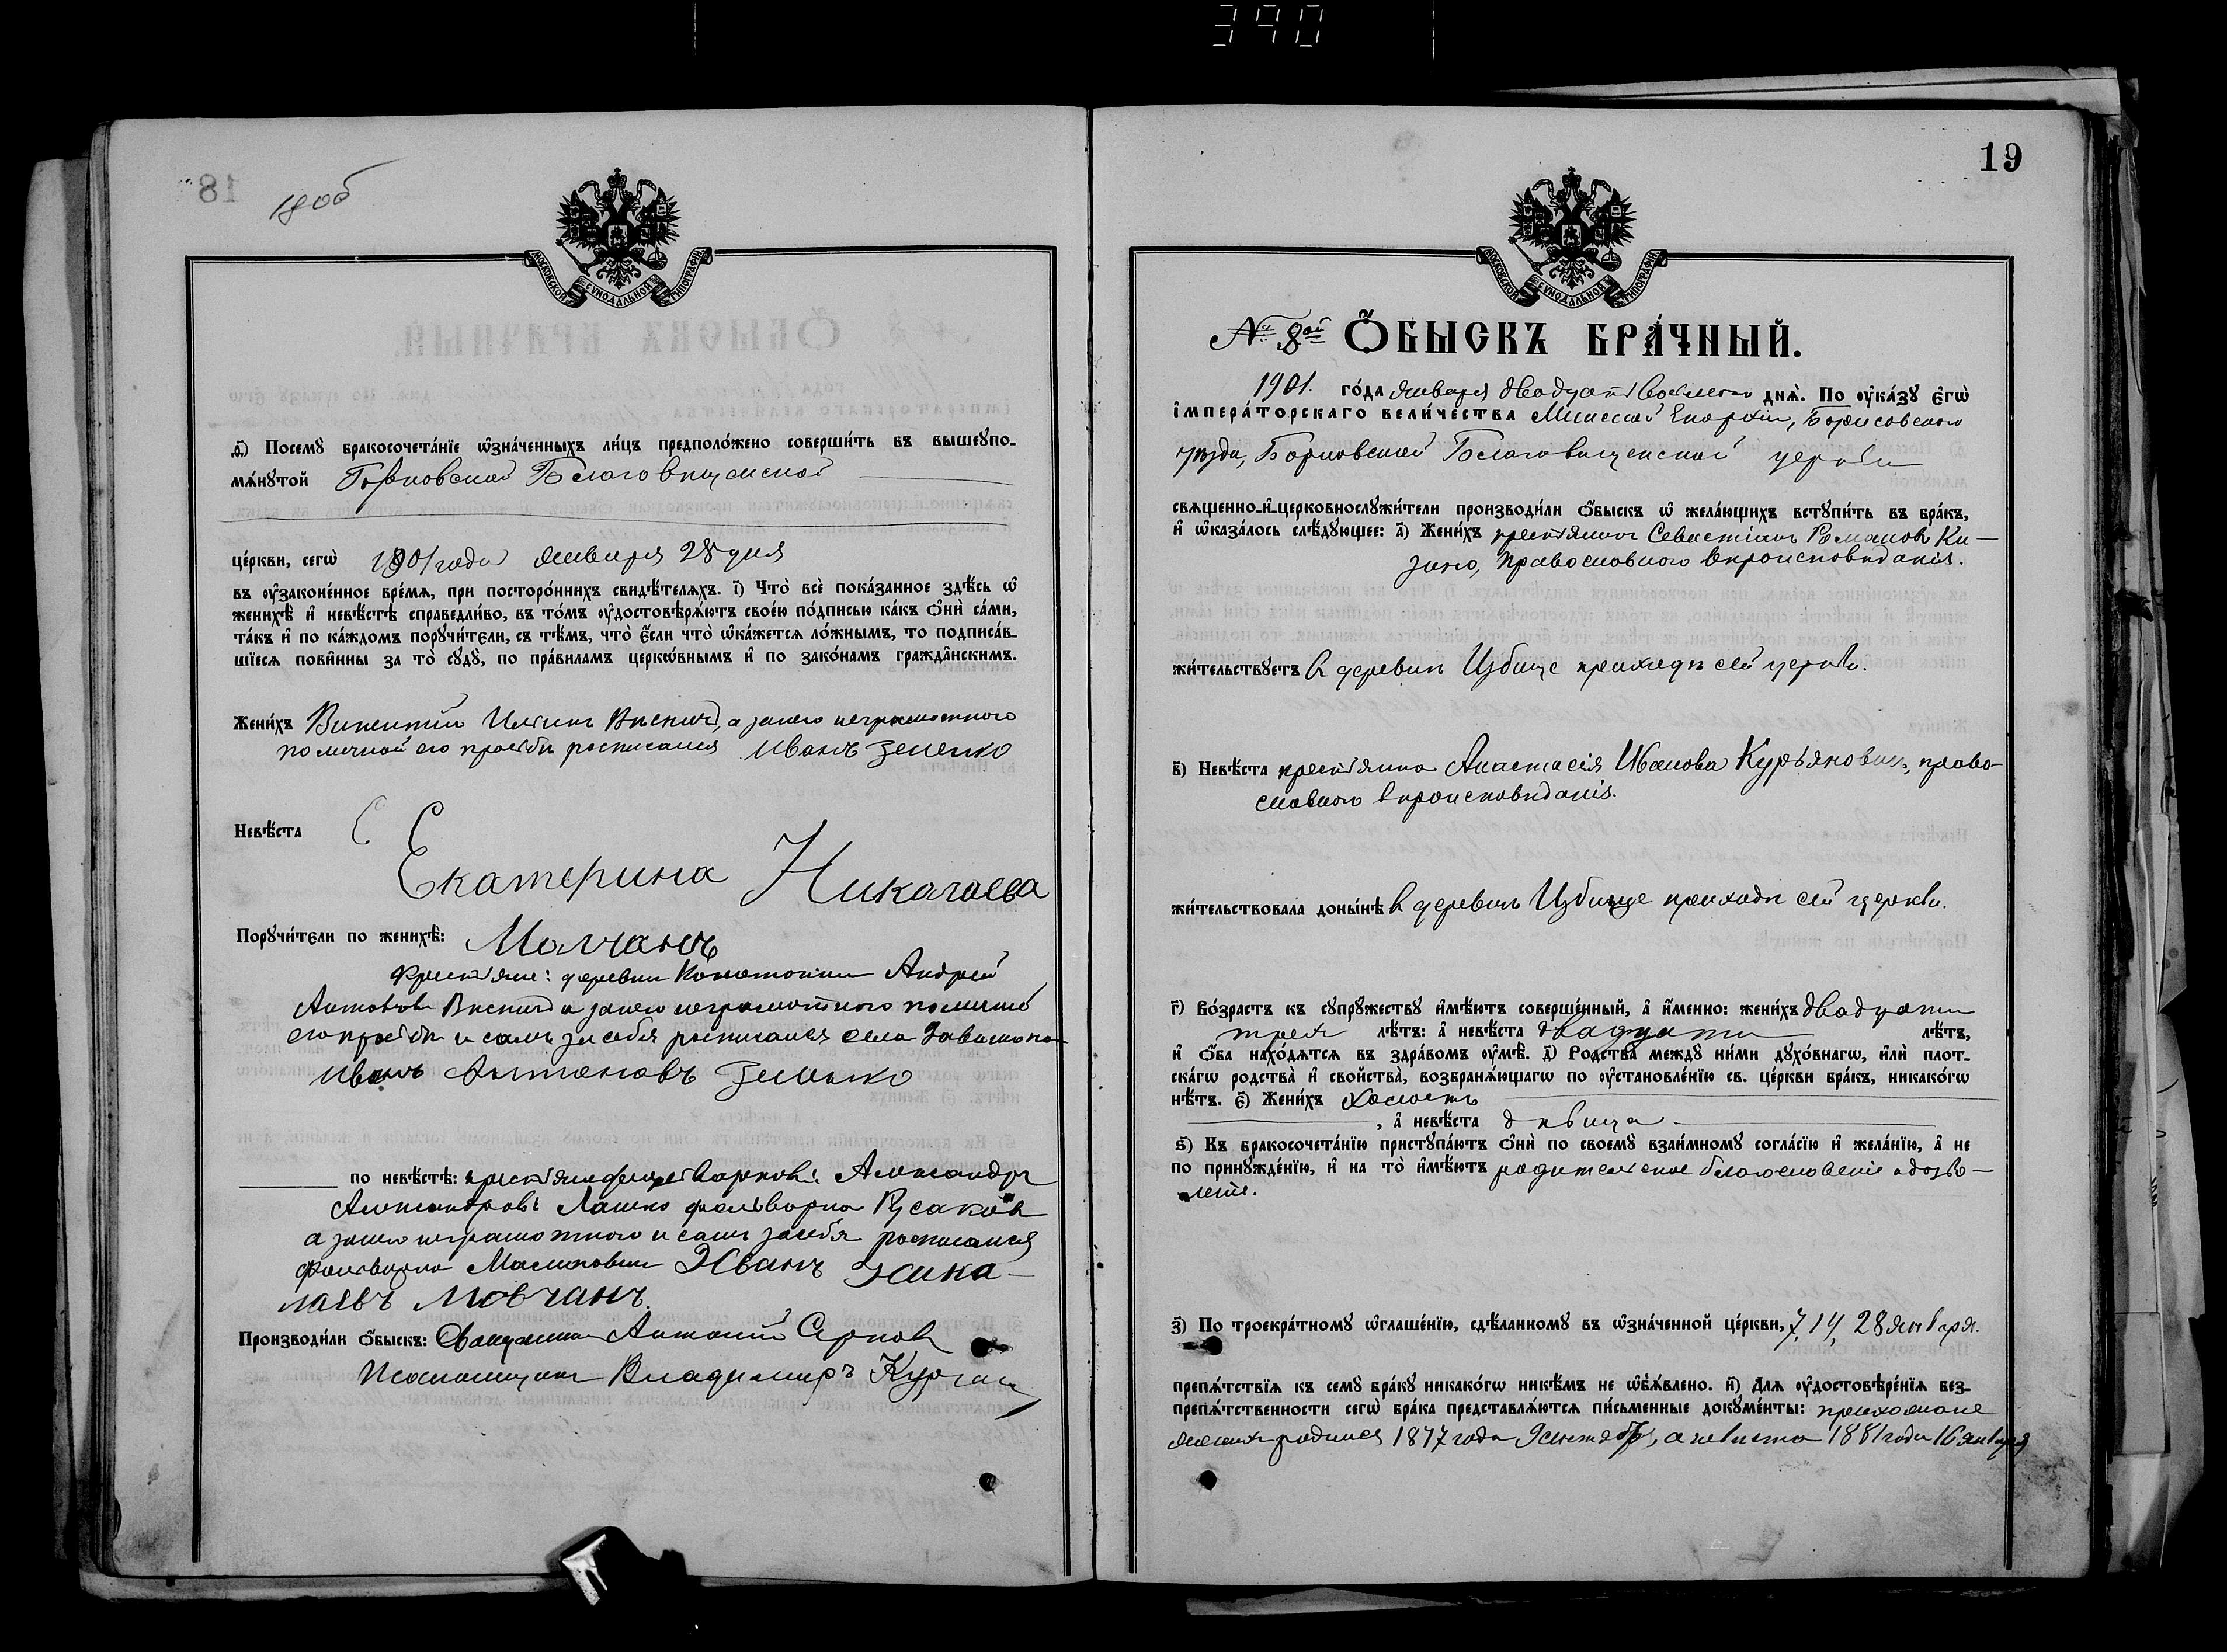 390
18
18 об
МОСКОВСКОЙ СѴНОДАЛЬНОЙ ТИПОГРАФІИ
д҃) Посемꙋ бракосочета́нїе ѡ҆зна́ченныхъ ли́цъ предполо́жено соверши́ть въ вышеꙋпо-
мѧ́нꙋтой Благовѣщенской
це́ркви, сегѡ̀ 1901 года Января 28 дня
въ ѹ҆законе́нное вре́мѧ, при посторо́ннихъ свидѣ́телѧхъ. і҃) Что̀ всѐ пока́занное здѣ́сь ѡ҆
женихѣ̀ и҆ невѣ́стѣ справедли́во, въ то́мъ ѹ҆достовѣрѧ́ютъ свое́ю по́дписью ка́къ ѻ҆нѝ са́ми,
та́къ и҆ по ка́ждомъ порꙋчи́тели, съ тѣ́мъ, что̀ є҆́сли что̀ ѡ҆ка́жетсѧ ло́жнымъ, то подписа́в-
шїесѧ пови́нны за то̀ сꙋдꙋ̀, по пра́виламъ церкѡ́внымъ и҆ по зако́намъ гражда́нскимъ.
Жени́хъ Викентій Ильинъ а занего неграмотнаго
по личной его просьбѣ росписался Иванъ Зенько
Невѣ́ста
Екатерина Николаева
Порꙋчи́тели по женихѣ̀: Молчанъ
Крестьяне: деревни Андрей
Антоновъ а занего неграмотнаго по личной
его просьбѣ и самъ за себя росписался села
Иванъ Антоновъ Зенько
по невѣ́стѣ: Александръ
Александровъ Лашко фольварка Русаковъ
а занего неграмотнаго и самъ засебя росписался
фольварка Иванъ Нико-
лаевъ Мовчанъ
Производи́ли ѻ҆́быскъ: Священникъ Антоній
Псаломщикъ Владимиръ
19
МОСКОВСКОЙ СѴНОДАЛЬНОЙ ТИПОГРАФІИ
№ 8ой Ѻ҆́БЫСКЪ БРА́ЧНЫЙ.
1901. го́да Января двадцать восьмого днѧ̀. По ѹ҆ка́зꙋ є҆гѡ̀
і҆мпера́торскаго вели́чества Минской Епархіи, Борисовского
уѣзда, Благовѣщенской церкви
свѧщенно-и҆-церковнослꙋжи́тели производи́ли ѻ҆́быскъ ѡ҆ жела́ющихъ встꙋпи́ть въ бра́къ,
и҆ ѡ҆каза́лось слѣ́дꙋющее: а҃) Жени́хъ крестьянинъ Севастіанъ Романовъ Ки-
зино, православного вѣроисповѣданія.
жи́тельствꙋетъ въ деревнѣ Избище прихода сей церкви.
в҃) Невѣ́ста крестьянка Анастасія Иванова Курьяновичъ, право-
славного вѣроисповѣданія.
жи́тельствовала доны́нѣ въ деревнѣ Избище прихода сей церкви.
г҃) Во́зрастъ къ сꙋпрꙋ́жествꙋ и҆мѣ́ютъ соверше́нный, а҆ и҆́менно: жени́хъ двадцати
трехъ лѣ́тъ: а҆ невѣ́ста двадцати лѣ́тъ,
и҆ ѻ҆́ба нахо́дѧтсѧ въ здра́вомъ ѹ҆мѣ̀. д҃) Родства̀ междꙋ ни́ми дꙋхо́внагѡ, и҆лѝ плот-
ска́гѡ родства̀ и҆ свойства̀, возбранѧ́ющагѡ по ѹ҆становле́нїю св. це́ркви бра́къ, никако́гѡ
нѣ́тъ. є҃) Жени́хъ холостъ
, а҆ невѣ́ста дѣвица
ѕ҃) Къ бракосочета́нїю пристꙋпа́ютъ ѻ҆нѝ по своемꙋ̀ взаи́мномꙋ согла́сїю и҆ жела́нїю, а҆ не
по принꙋжде́нїю, и҆ на то̀ и҆мѣ́ютъ родительское благословеніе и дозво-
леніе.
з҃) По троекра́тномꙋ ѡ҆глаше́нїю, сдѣ́ланномꙋ въ ѡ҆зна́ченной це́ркви, 7, 14, 28 января.
препѧ́тствїѧ къ семꙋ̀ бра́кꙋ никако́гѡ никѣ́мъ не ѡ҆б̾ѧ́влено. и҃) Длѧ ѹ҆достовѣре́нїѧ без-
препѧ́тственности сегѡ̀ бра́ка представлѧ́ютсѧ пи́сьменные докꙋме́нты: прихожане
женихъ родился 1877 года 9 сентября, а невѣста 1881 года 16 января